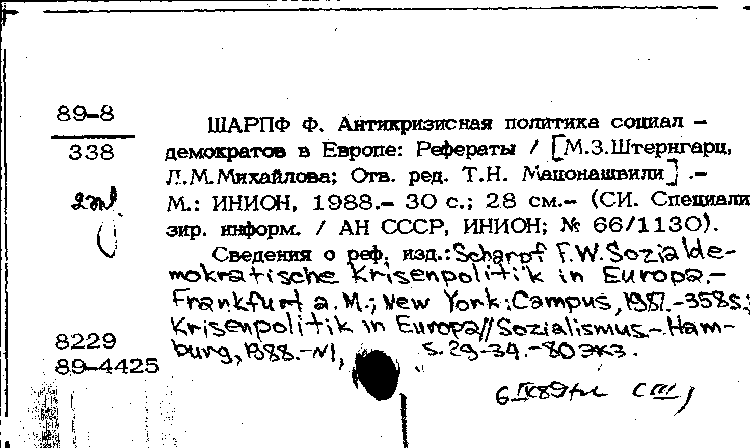 89-8
338
ШАРПФ Ф. Антикризисная политика социал -
демократов в Европе: Рефераты / [М.З.Штернгарц,
Л.М.Михайлова; Отв. ред. Т.Н. Мацонашвили] .-
М.: ИНИОН, 1988.- 30 с.; 28 см.- (СИ. Специали
зир. информ. / АН СССР, ИНИОН; № 66/1130).
Сведения о реф. изд.: Scharpf F.W. Sozialde-
mokratische Krisenpolitik in Europa.-
Frankfurt a. M.; New York: Campus, 1987.-358S.;
Krisenpolitik in Europa//Sozialismus.-Ham-
burg, 1988.-N1, S. 29-34.-80экз.
8229
89-4425